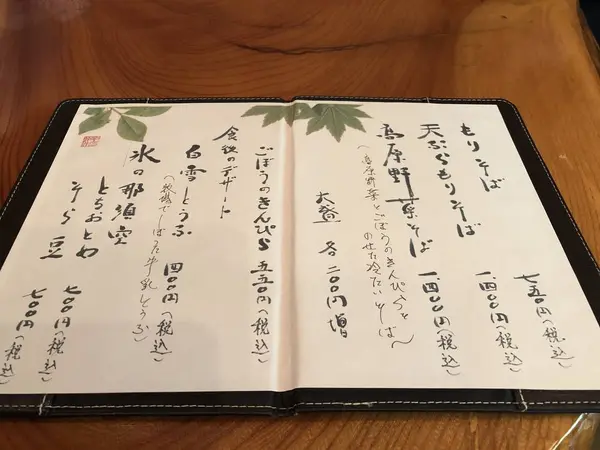 もりそば 七五〇円(税込)
天ぷらもりそば 一四〇〇円(税込)
高原野菜そば 一四〇〇円(税込)
(高原野菜とごぼうのきんぴらを
のせた冷たいそば)
大盛 各二〇〇円増
ごぼうのきんぴら 五五〇円(税込)
食後のデザート
白雪とうふ 四〇〇円(税込)
(牧場でしぼった牛乳とうふ)
氷の那須雪
とちおとめ 七〇〇円(税込)
そら豆 七〇〇円(税込)